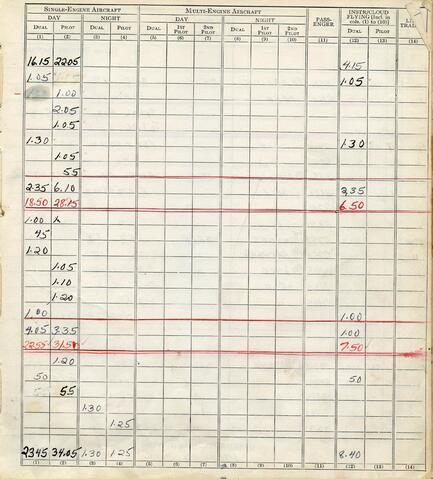 SINGLE-ENGINE AIRCRAFT MULTI-ENGINE AIRCRAFT PASS-ENGER INSTR/CLOUD FLYING [Incl. in cols. (1) to (10)]
DAY NIGHT DAY NIGHT
DUAL PILOT DUAL PILOT DUAL 1ST PILOT 2ND PILOT DUAL 1ST PILOT 2ND PILOT DUAL PILOT
(1) (2) (3) (4) (5) (6) (7) (8) (9) (10) (11) (12) (13) (14)
16.15 22.05 4.15
1.05 1.05
1.00
2.05
1.05
1.30 1.30
1.05
55
2.35 6.10 3.35
18.50 28.15 6.50
1.00
45
1.20
1.05
1.10
1.20
1.00 1.00
4.05 3.35 1.00
22.55 31.50 7.50
1.20
50 50
55
1.30
1.25
23.45 34.05 1.30 1.25 8.40
(1) (2) (3) (4) (5) (6) (7) (8) (9) (10) (11) (12) (13) (14)